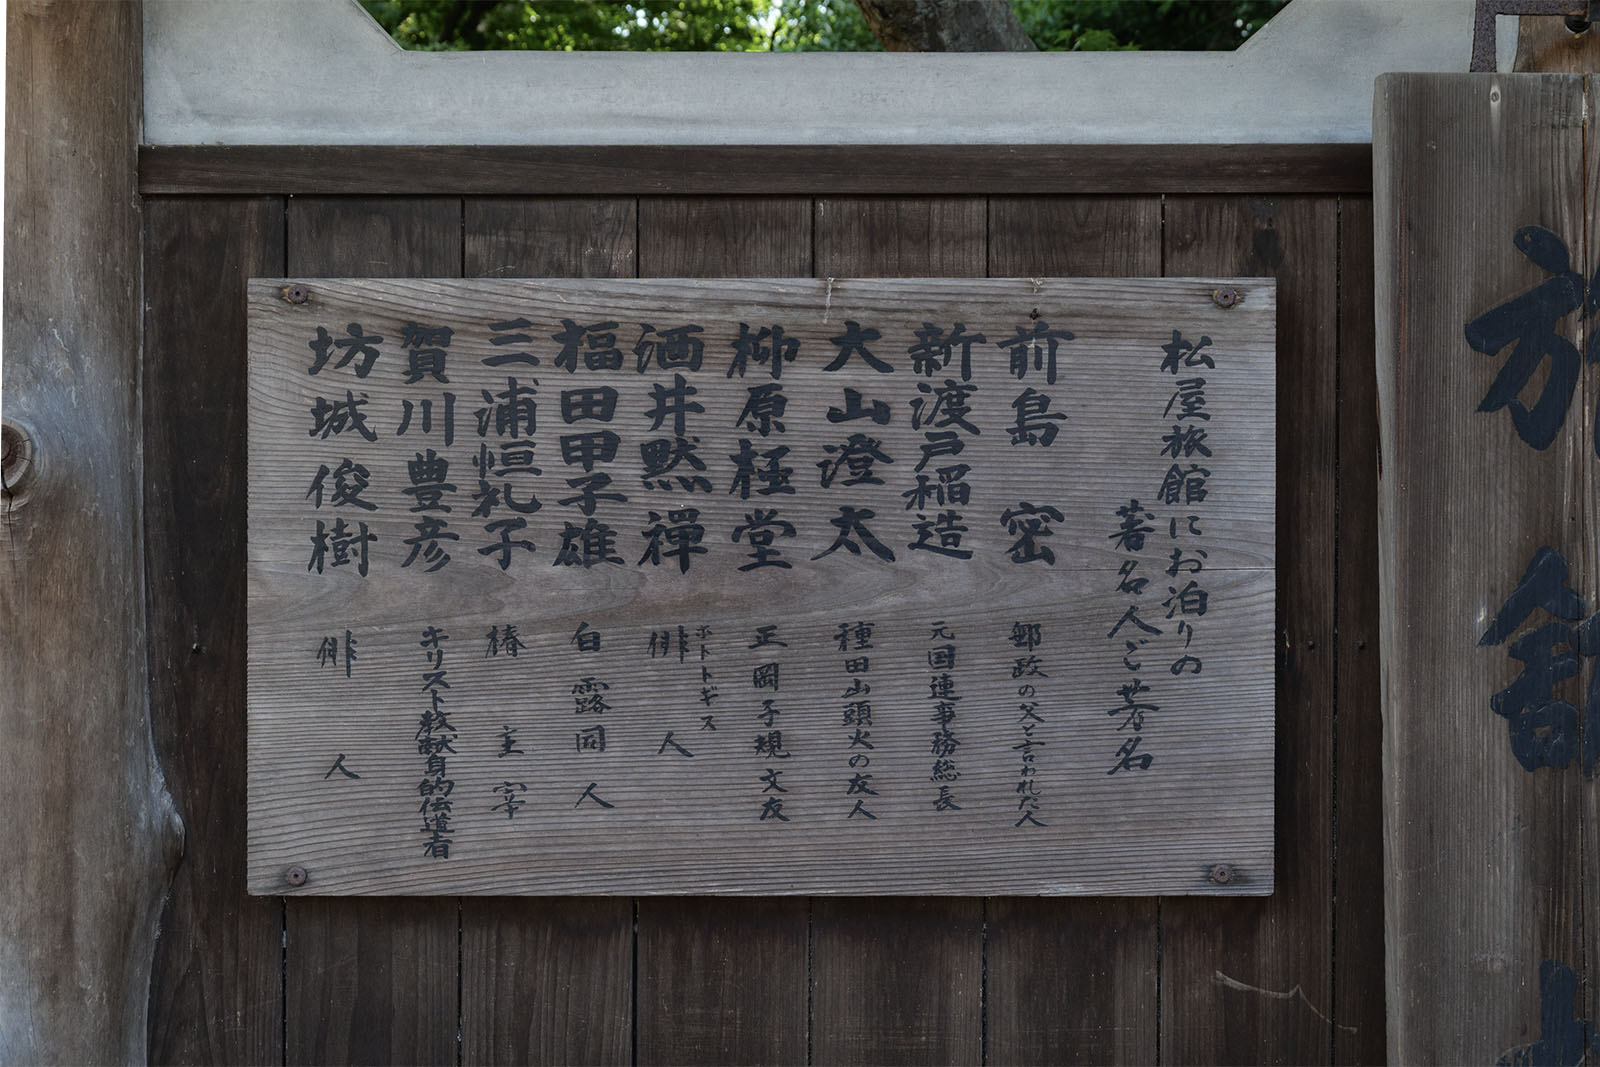 旅館
松屋旅館にお泊りの
著名人ご芳名
前島密 郵政の父と言われた人
新渡戸稲造 元国連事務総長
大山澄太 種田山頭火の友人
柳原極堂 正岡子規文友
酒井黙禅 ホトトギス俳人
福田甲子雄 白露同人
三浦恒礼子 椿主宰
賀川豊彦 キリスト教献身的伝道者
坊城俊樹 俳人